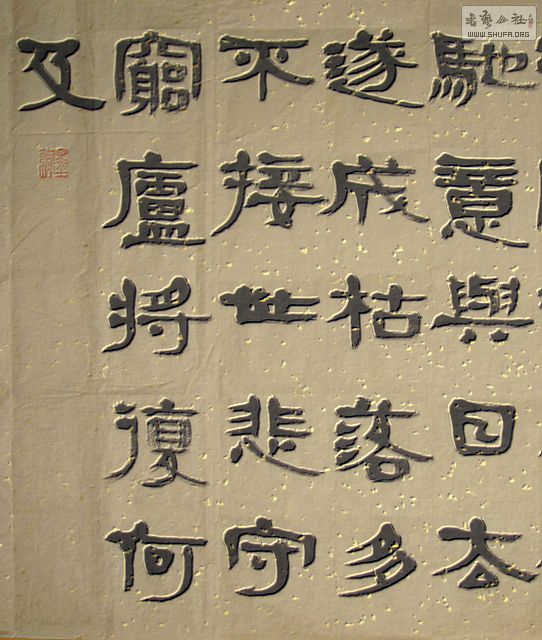 馳意與日去
遂成枯落多
不接世悲守
窮廬將復何
及
書藝公社
WWW.SHUFA.ORG